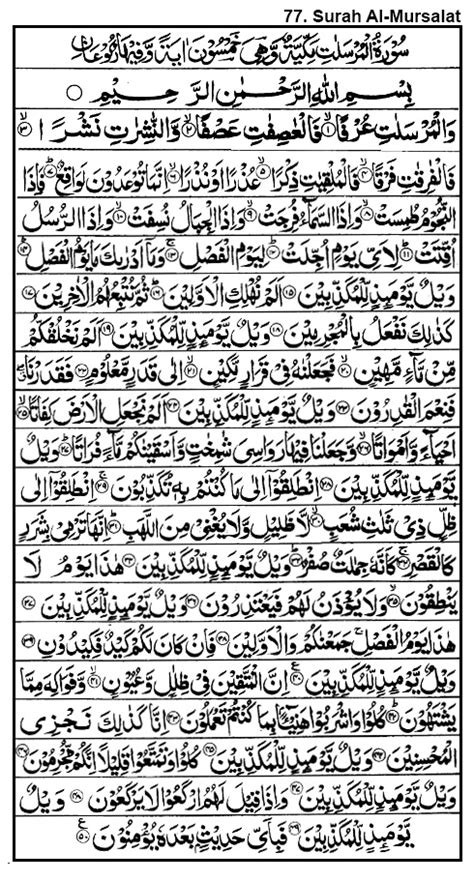 77. Surah Al-Mursalat
سُوْرَةُ الْمُرْسَلٰتِ مَكِّيَّةٌ وَّهِيَ خَمْسُوْنَ اٰيَةً وَّفِيْهَا رُكُوْعَانِ
بِسْمِ اللّٰهِ الرَّحْمٰنِ الرَّحِيْمِ
وَالْمُرْسَلٰتِ عُرْفًا ۙ‏﴿۱﴾ فَالْعٰصِفٰتِ عَصْفًا ۙ‏﴿۲﴾ وَّالنّٰشِرٰتِ نَشْرًا ۙ‏﴿۳﴾
فَالْفٰرِقٰتِ فَرْقًا ۙ‏﴿۴﴾ فَالْمُلْقِيٰتِ ذِكْرًا ۙ‏﴿۵﴾ عُذْرًا اَوْ نُذْرًا ۙ‏﴿۶﴾ اِنَّمَا تُوْعَدُوْنَ لَوَاقِعٌ ؕ‏﴿۷﴾ فَاِذَا
النُّجُوْمُ طُمِسَتْ ۙ‏﴿۸﴾ وَاِذَا السَّمَآءُ فُرِجَتْ ۙ‏﴿۹﴾ وَاِذَا الْجِبَالُ نُسِفَتْ ۙ‏﴿۱۰﴾ وَاِذَا الرُّسُلُ
اُقِّتَتْ ؕ‏﴿۱۱﴾ لِاَيِّ يَوْمٍ اُجِّلَتْ ؕ‏﴿۱۲﴾ لِيَوْمِ الْفَصْلِ ۚ‏﴿۱۳﴾ وَمَاۤ اَدْرٰىكَ مَا يَوْمُ الْفَصْلِ ؕ‏﴿۱۴﴾
وَيْلٌ يَّوْمَئِذٍ لِّلْمُكَذِّبِيْنَ ‏﴿۱۵﴾ اَلَمْ نُهْلِكِ الْاَوَّلِيْنَ ؕ‏﴿۱۶﴾ ثُمَّ نُتْبِعُهُمُ الْاٰخِرِيْنَ ‏﴿۱۷﴾
كَذٰلِكَ نَفْعَلُ بِالْمُجْرِمِيْنَ ‏﴿۱۸﴾ وَيْلٌ يَّوْمَئِذٍ لِّلْمُكَذِّبِيْنَ ‏﴿۱۹﴾ اَلَمْ نَخْلُقْكُّمْ
مِّنْ مَّآءٍ مَّهِيْنٍ ۙ‏﴿۲۰﴾ فَجَعَلْنٰهُ فِيْ قَرَارٍ مَّكِيْنٍ ۙ‏﴿۲۱﴾ اِلٰى قَدَرٍ مَّعْلُوْمٍ ۙ‏﴿۲۲﴾ فَقَدَرْنَا ۖ
فَنِعْمَ الْقٰدِرُوْنَ ‏﴿۲۳﴾ وَيْلٌ يَّوْمَئِذٍ لِّلْمُكَذِّبِيْنَ ‏﴿۲۴﴾ اَلَمْ نَجْعَلِ الْاَرْضَ كِفَاتًا ۙ‏﴿۲۵﴾
اَحْيَآءً وَّاَمْوَاتًا ۙ‏﴿۲۶﴾ وَّجَعَلْنَا فِيْهَا رَوَاسِيَ شٰمِخٰتٍ وَّاَسْقَيْنٰكُمْ مَّآءً فُرَاتًا ؕ‏﴿۲۷﴾ وَيْلٌ
يَّوْمَئِذٍ لِّلْمُكَذِّبِيْنَ ‏﴿۲۸﴾ اِنْطَلِقُوْۤا اِلٰى مَا كُنْتُمْ بِهٖ تُكَذِّبُوْنَ ۚ‏﴿۲۹﴾ اِنْطَلِقُوْۤا اِلٰى
ظِلٍّ ذِيْ ثَلٰثِ شُعَبٍ ۙ‏﴿۳۰﴾ لَّا ظَلِيْلٍ وَّلَا يُغْنِيْ مِنَ اللَّهَبِ ؕ‏﴿۳۱﴾ اِنَّهَا تَرْمِيْ بِشَرَرٍ
كَالْقَصْرِ ۚ‏﴿۳۲﴾ كَاَنَّهٗ جِمٰلَتٌ صُفْرٌ ؕ‏﴿۳۳﴾ وَيْلٌ يَّوْمَئِذٍ لِّلْمُكَذِّبِيْنَ ‏﴿۳۴﴾ هٰذَا يَوْمُ لَا
يَنْطِقُوْنَ ۙ‏﴿۳۵﴾ وَلَا يُؤْذَنُ لَهُمْ فَيَعْتَذِرُوْنَ ‏﴿۳۶﴾ وَيْلٌ يَّوْمَئِذٍ لِّلْمُكَذِّبِيْنَ ‏﴿۳۷﴾
هٰذَا يَوْمُ الْفَصْلِ ۚ جَمَعْنٰكُمْ وَالْاَوَّلِيْنَ ‏﴿۳۸﴾ فَاِنْ كَانَ لَكُمْ كَيْدٌ فَكِيْدُوْنِ ‏﴿۳۹﴾
وَيْلٌ يَّوْمَئِذٍ لِّلْمُكَذِّبِيْنَ ‏﴿۴۰﴾ اِنَّ الْمُتَّقِيْنَ فِيْ ظِلٰلٍ وَّعُيُوْنٍ ۙ‏﴿۴۱﴾ وَّفَوَاكِهَ مِمَّا
يَشْتَهُوْنَ ؕ‏﴿۴۲﴾ كُلُوْا وَاشْرَبُوْا هَنِيْٓـًٔۢا بِمَا كُنْتُمْ تَعْمَلُوْنَ ‏﴿۴۳﴾ اِنَّا كَذٰلِكَ نَجْزِي
الْمُحْسِنِيْنَ ‏﴿۴۴﴾ وَيْلٌ يَّوْمَئِذٍ لِّلْمُكَذِّبِيْنَ ‏﴿۴۵﴾ كُلُوْا وَتَمَتَّعُوْا قَلِيْلًا اِنَّكُمْ مُّجْرِمُوْنَ ‏﴿۴۶﴾
وَيْلٌ يَّوْمَئِذٍ لِّلْمُكَذِّبِيْنَ ‏﴿۴۷﴾ وَاِذَا قِيْلَ لَهُمُ ارْكَعُوْا لَا يَرْكَعُوْنَ ‏﴿۴۸﴾ وَيْلٌ
يَّوْمَئِذٍ لِّلْمُكَذِّبِيْنَ ‏﴿۴۹﴾ فَبِاَيِّ حَدِيْثٍۢ بَعْدَهٗ يُؤْمِنُوْنَ ‏﴿۵۰﴾